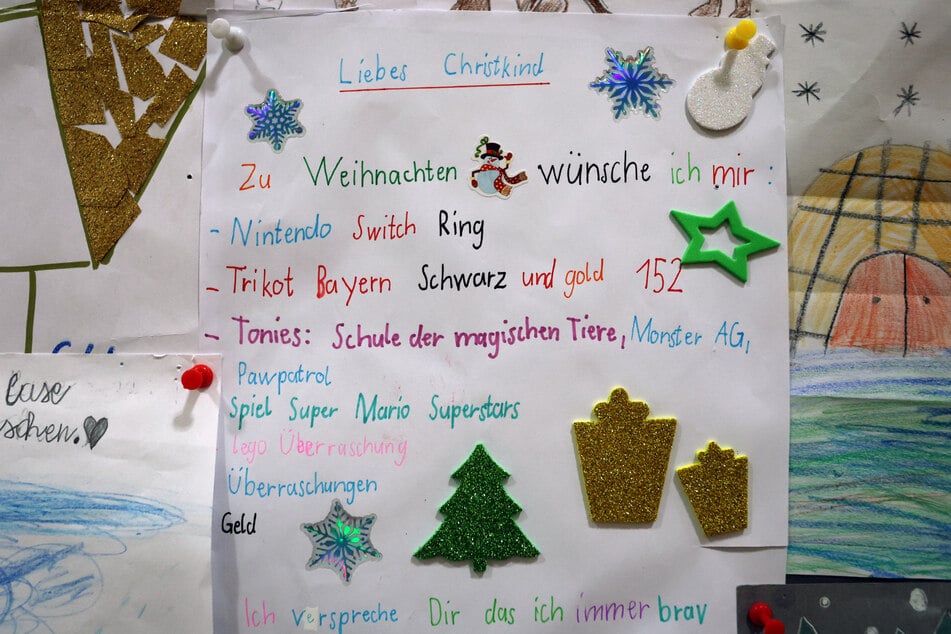 Liebes Christkind
Zu Weihnachten wünsche ich mir :
- Nintendo Switch Ring
- Trikot Bayern Schwarz und gold 152
- Tonies: Schule der magischen Tiere, Monster AG,
Pawpatrol
Spiel Super Mario Superstars
Lego Überraschung
Überraschungen
Geld
Ich verspreche Dir das ich immer brav
schen.